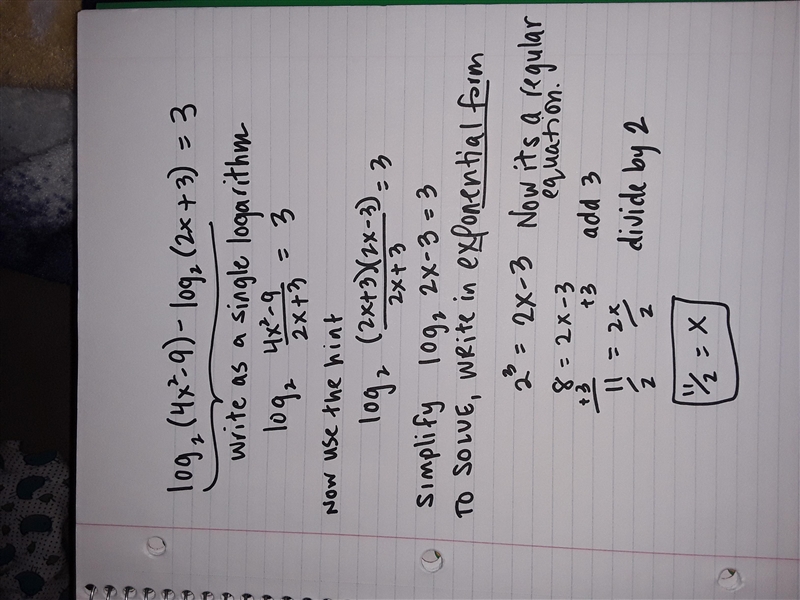 log₂(4x²-9)-log₂(2x+3)=3
write as a single logarithm
log₂ (4x²-9)/(2x+3) = 3
Now use the hint
log₂ ((2x+3)(2x-3))/(2x+3) = 3
Simplify log₂ 2x-3=3
To SOLVE, write in exponential form
2³ = 2x-3 Now its a regular
equation.
8 = 2x-3
+3 +3 add 3
11 = 2x
/2 /2 divide by 2
11/2 = x